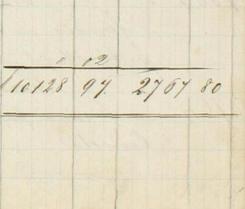 02
10128 97 2767 80